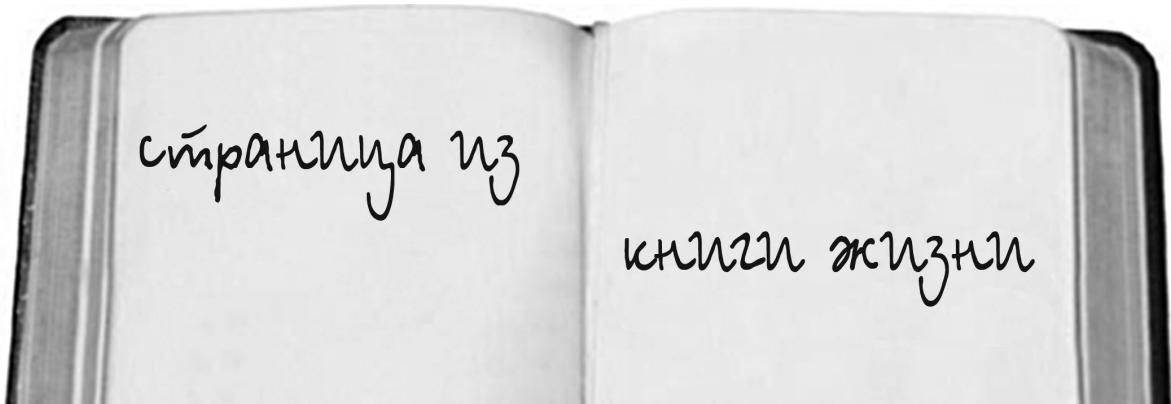 страница из
книги жизни